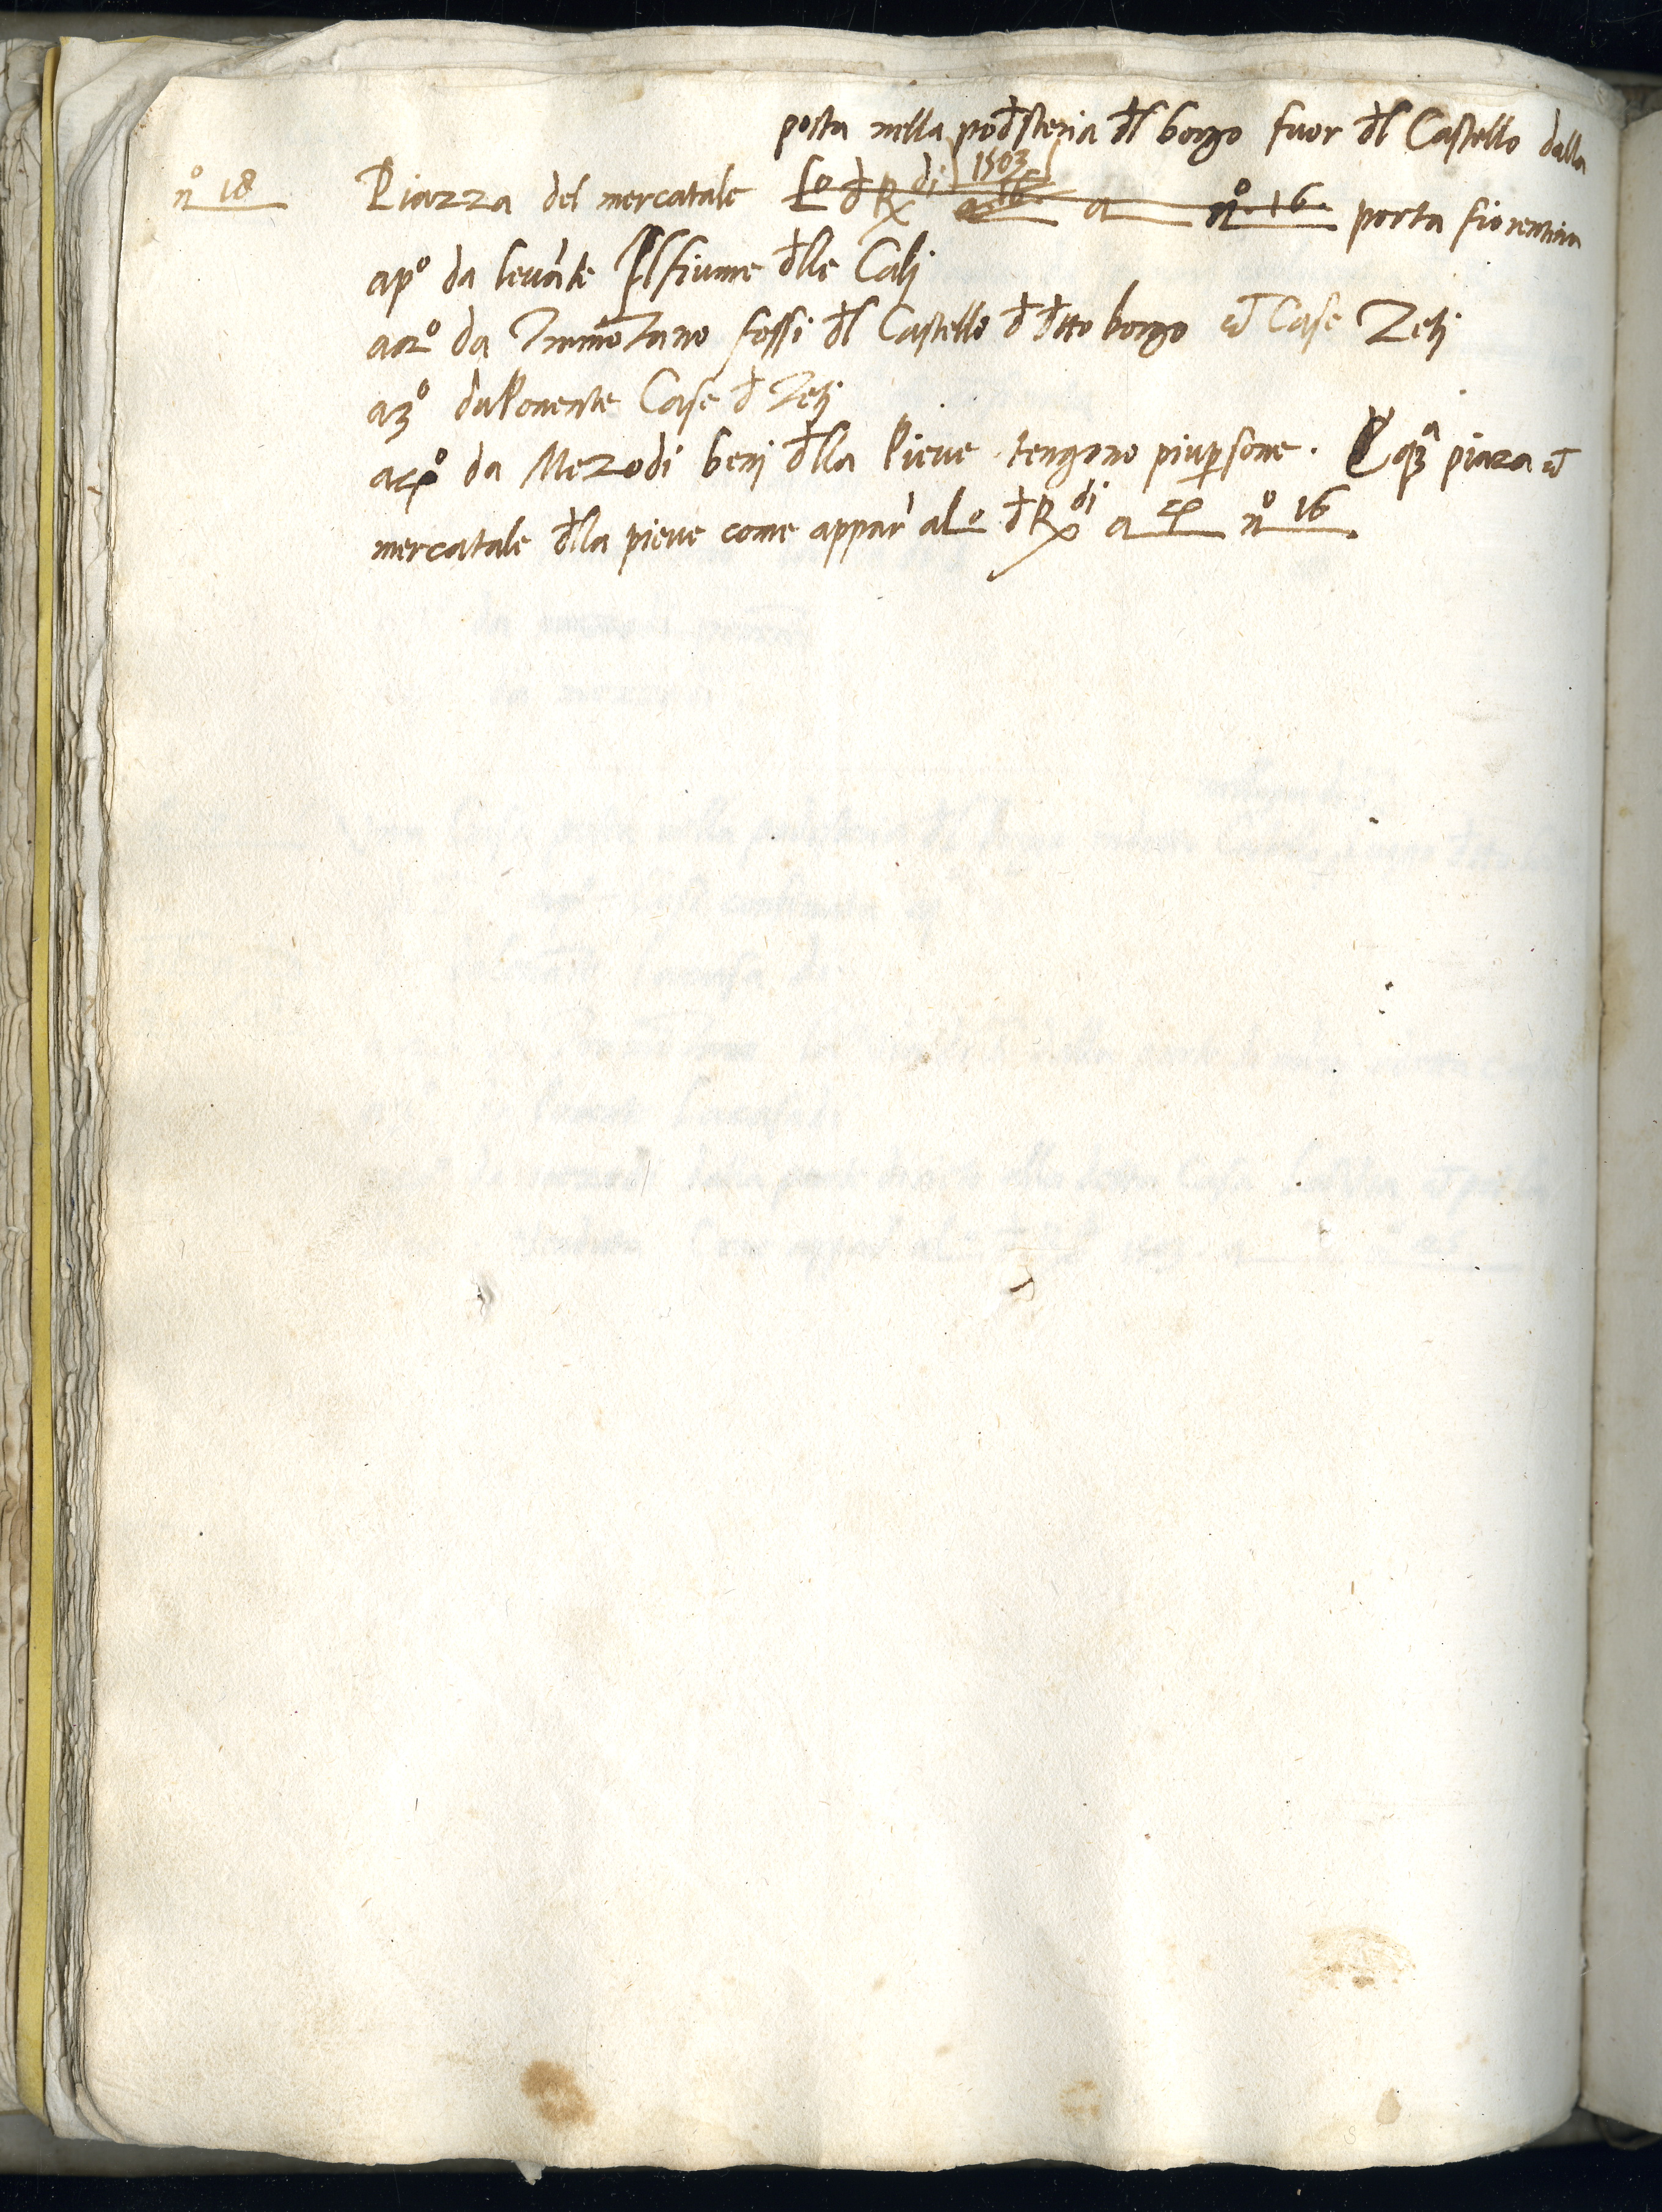 posta nella podsteria dl borgo fuor dl Castello dalla
1503
nº 18 Piazza del mercatale Lº d Rdi a nº 16 porta fiorentina
apº da levante Il fiume dlle Calj
a2º da Tramotano fossi dl Castello d dtto borgo et Case Zetj
a3º da Ponente Case d Zetj
a4º da Mezodi benj dlla Pieve tengono piu psone. E qsta piaza et
mercatale dlla pieve come appar al Lº d Rdi a 4 nº 16